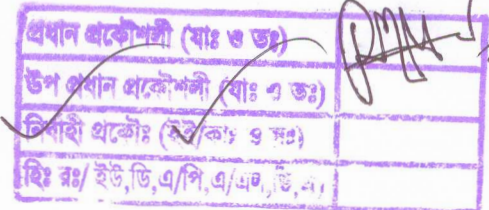 প্রধান প্রকৌশলী (যাঃ ও তঃ)
উপ প্রধান প্রকৌশলী (যাঃ ও তঃ)
নির্বাহী প্রকৌঃ
হিঃ রঃ/ ইউ,ডি,এ/পি,এ/এল,ডি,এ